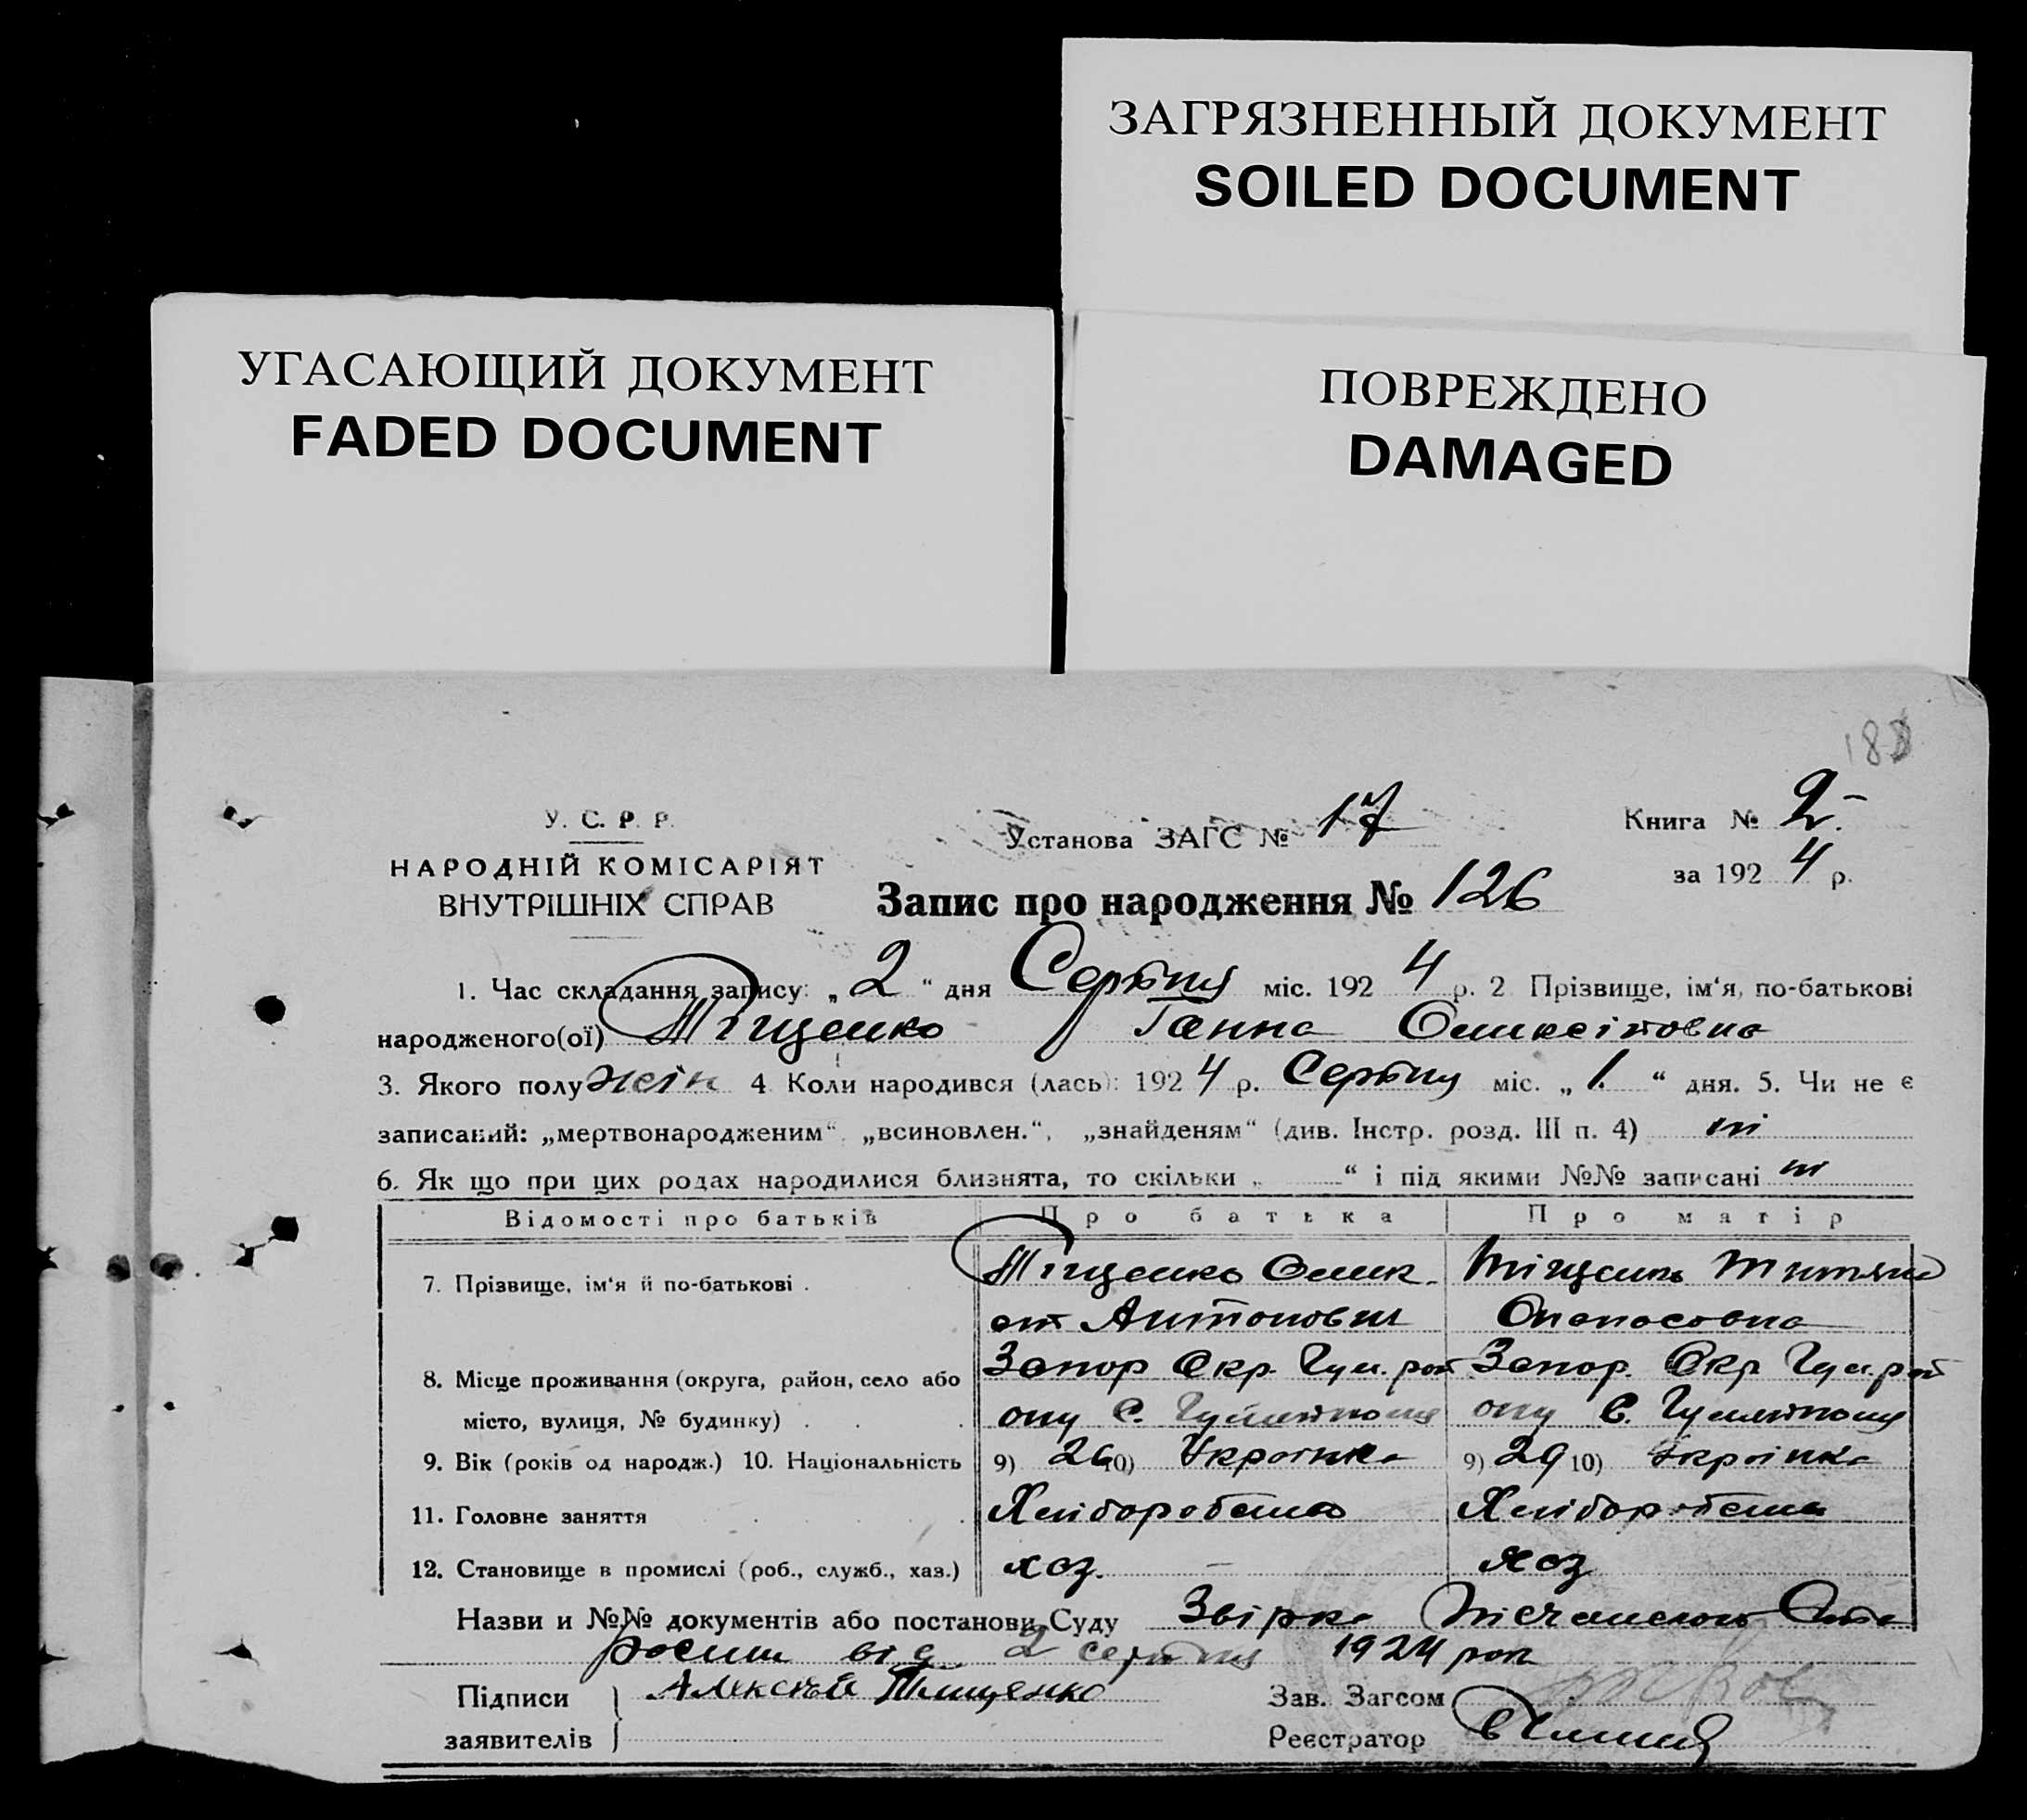 ЗАГРЯЗНЕННЫЙ ДОКУМЕНТ
SOILED DOCUMENT
УГАСАЮЩИЙ ДОКУМЕНТ
FADED DOCUMENT
ПОВРЕЖДЕНО
DAMAGED
У. С. Р. Р.
НАРОДНІЙ КОМІСАРІЯТ
ВНУТРІШНІХ СПРАВ
Установа ЗАГС № 17
Книга № 2
за 1924 р.
Запис про народження № 126
1. Час складання запису: „2“ дня Серпня міс. 1924 р. 2 Прізвище, ім‘я, по-батькові
народженого(ої) Тіщенко Ганна Олексіївна
3. Якого полу жін 4 Коли народився (лась): 1924 р. Серпня міс. „1.“ дня. 5. Чи не є
записаний: „мертвонародженим“, „всиновлен.“, „знайденям“ (див. Інстр. розд. III п. 4) ні
6. Як що при цих родах народилися близнята, то скільки „ “ і під якими №№ записані ні
Відомості про батьків Про батька Про матір
7. Прізвище, ім‘я й по-батькові Тіщенко Антонович Тіщенко Опанасовна
8. Місце проживання (округа, район, село або Запор Окр. Гул. рай Запор. Окр Гул. рай
місто, вулиця, № будинку) ону С. ону С.
9. Вік (років од народж.) 10. Національність 9) 26 10) Українка 9) 29 10) Українка
11. Головне заняття Хліборобство Хліборобство
12. Становище в промислі (роб., служб., хаз.) хоз. хоз
Назви и №№ документів або постанови Суду
від 2 серпня 1924 року
Підписи Алексей Тищенко Зав. Загсом
заявителів Реєстратор